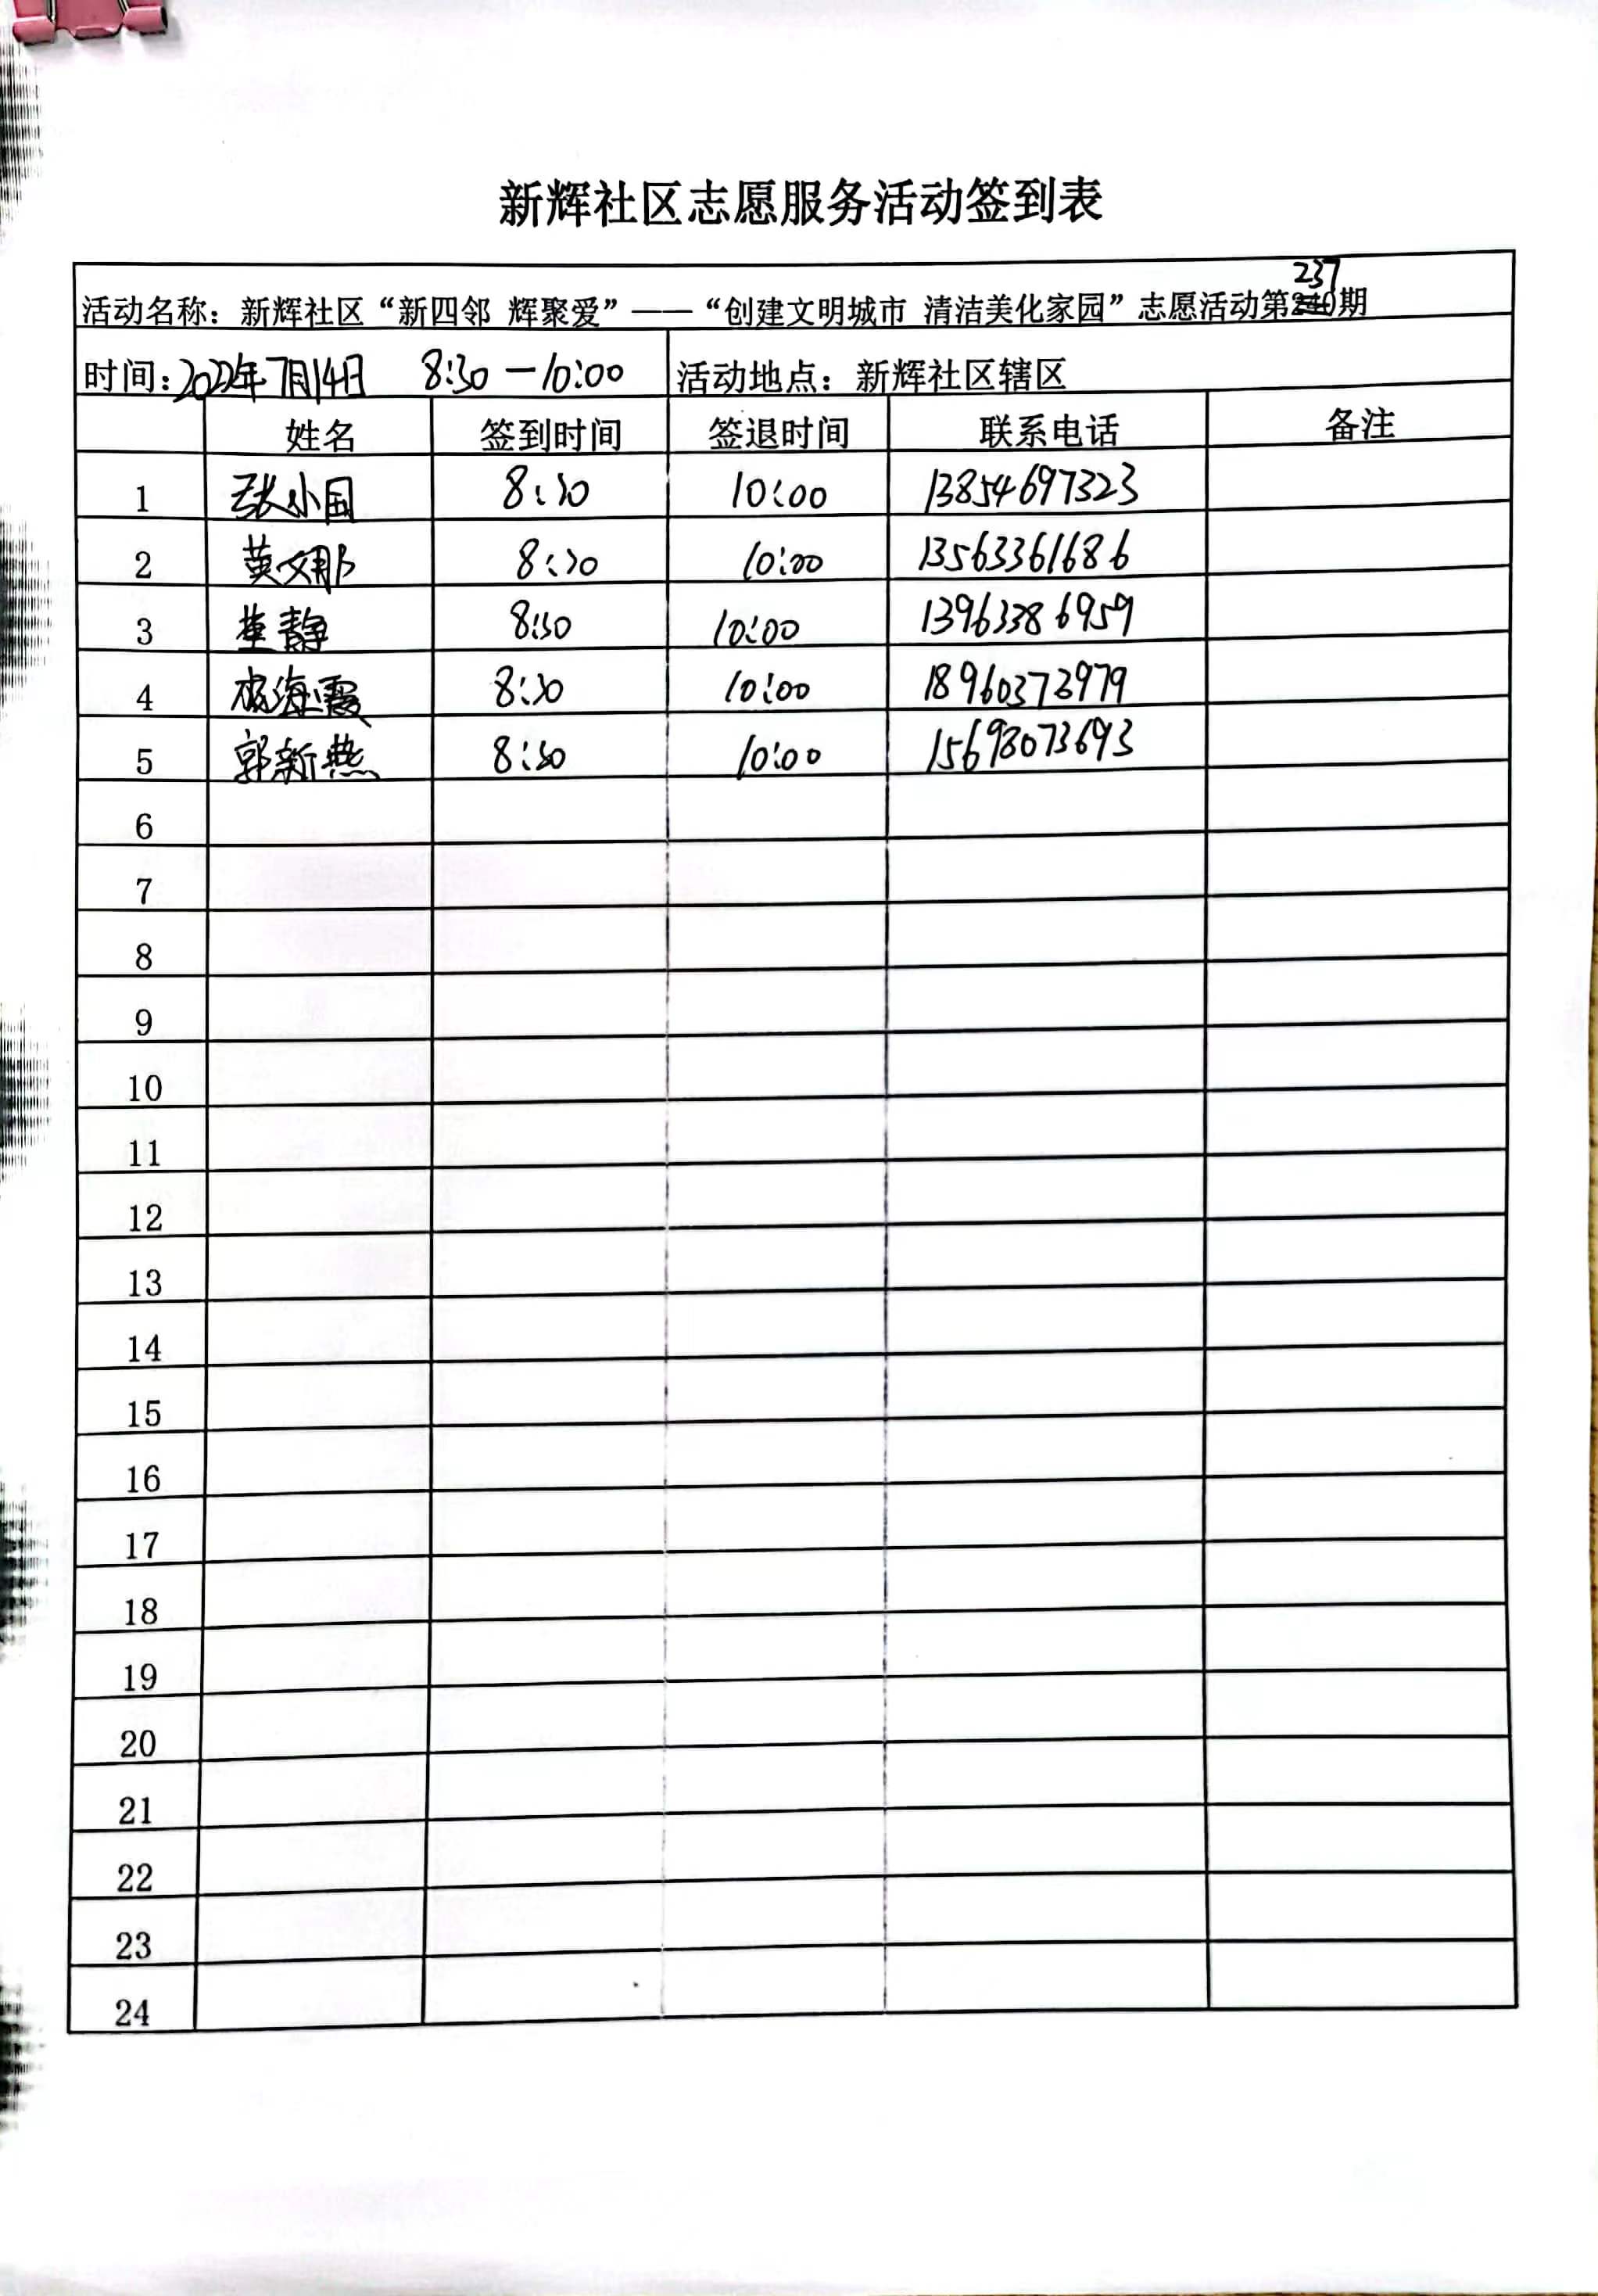 新辉社区志愿服务活动签到表
237
活动名称：新辉社区“新四邻 辉聚爱”——“创建文明城市 清洁美化家园”志愿活动第240期
时间：2022年7月14日 8:30—10:00 活动地点：新辉社区辖区
姓名 签到时间 签退时间 联系电话 备注
1 张小国 8:30 10:00 13854697323
2 黄文那 8:30 10:00 13563361686
3 董静 8:30 10:00 13963386959
4 海霞 8:30 10:00 18960373979
5 郭新燕 8:30 10:00 15698073693
6
7
8
9
10
11
12
13
14
15
16
17
18
19
20
21
22
23
24